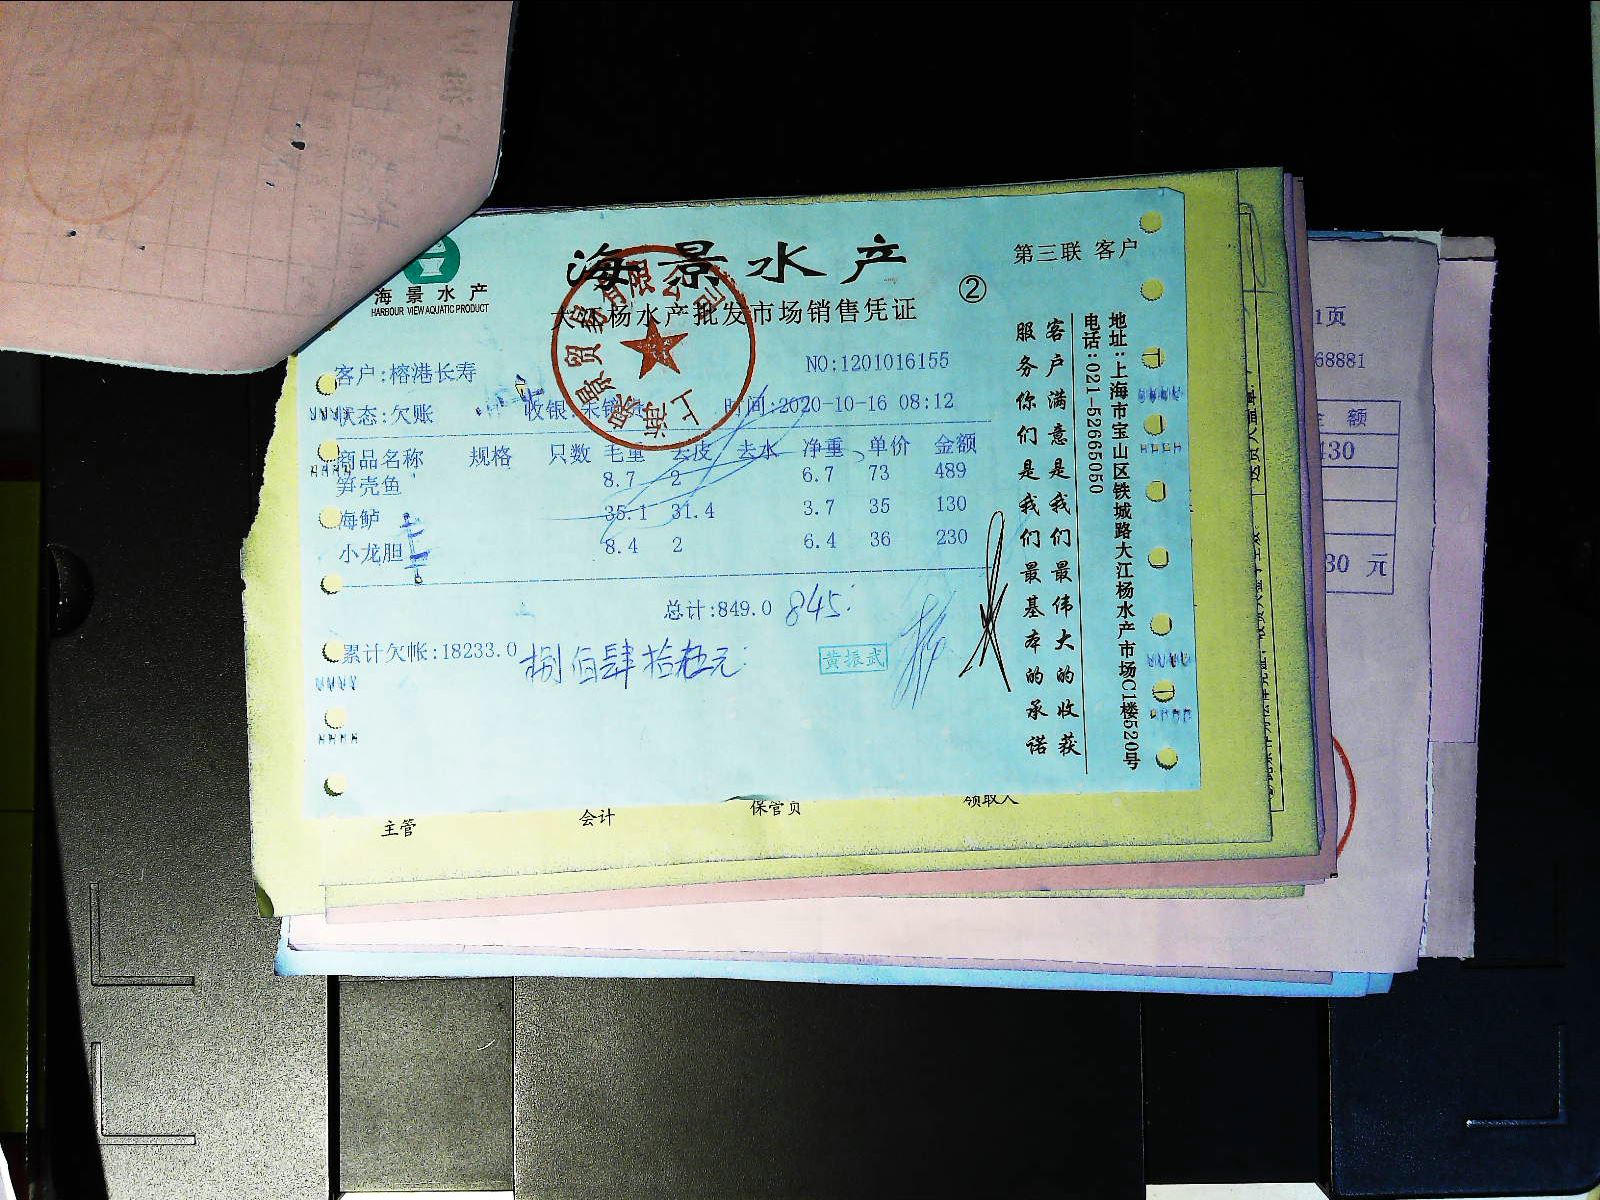 海景水产
HARBOUR VIEW AQUATIC PRODUCT
海景水产
第三联 客户
②
大江杨水产批发市场销售凭证
客户:榕港长寿
NO:1201016155
状态:欠账
收银:未销货
时间:2020-10-16 08:12
商品名称 规格 只数 毛重 去皮 去水 净重 单价 金额
笋壳鱼 8.7 2 6.7 73 489
海鲈 35.1 31.4 3.7 35 130
小龙胆 8.4 2 6.4 36 230
总计:849.0 845
累计欠帐:18233.0
捌佰肆拾伍元
黄振武
客户满意是我们最伟大的收获
服务你们是我们最基本的承诺
地址:上海市宝山区铁城路大江杨水产市场C1楼520号
电话:021-52665050
主管
会计
保管员
领取人
1页
68881
金额
430
30 元